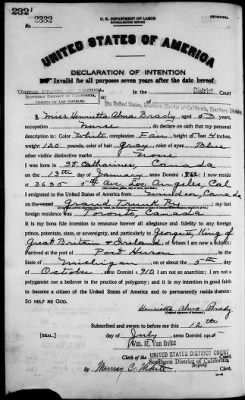 2332
2332
No.
U. S. DEPARTMENT OF LABOR
NATURALIZATION SERVICE
ORIGINAL
UNITED STATES OF AMERICA
DECLARATION OF INTENTION
Invalid for all purposes seven years after the date hereof
In the District Court
of The United States, Southern District of California, Southern Division
I, Miss Henrietta Alma Brady, aged 52 years,
occupation Nurse, do declare on oath that my personal
description is: Color White, complexion Fair, height 5 feet 4 inches,
weight 120 pounds, color of hair Gray, color of eyes Blue
other visible distinctive marks none
I was born in St. Catharines, Canada
on the 19th day of January, anno Domini 1862; I now reside
at 3635 Ave, Los Angeles, Cal.
I emigrated to the United States of America from Canada
on the vessel Grand Trunk Ry; my last
foreign residence was Toronto, Canada
It is my bona fide intention to renounce forever all allegiance and fidelity to any foreign
prince, potentate, state, or sovereignty, and particularly to George V, King of
Great Britain & Ireland, of whom I am now a subject;
I arrived at the port of Port Huron, in the
State of Michigan, on or about the 5th day
of October, anno Domini 1910; I am not an anarchist; I am not a
polygamist nor a believer in the practice of polygamy; and it is my intention in good faith
to become a citizen of the United States of America and to permanently reside therein:
SO HELP ME GOD.
Henrietta Alma Brady
Subscribed and sworn to before me this 12th
day of July, anno Domini
Wm. M. Van Dyke
Clerk of the UNITED STATES DISTRICT COURT
Southern District of California
By Murray C. White, Deputy Clerk.